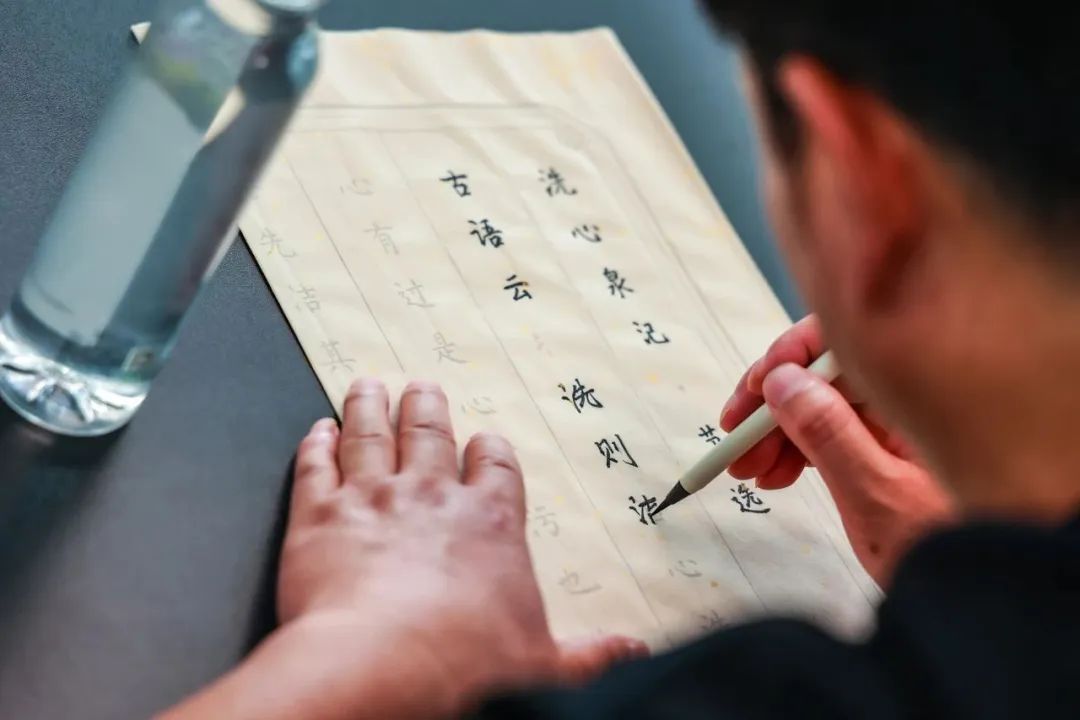 洗心泉记·节选
古语云洗则洁心
心有过是心污也
先洁其